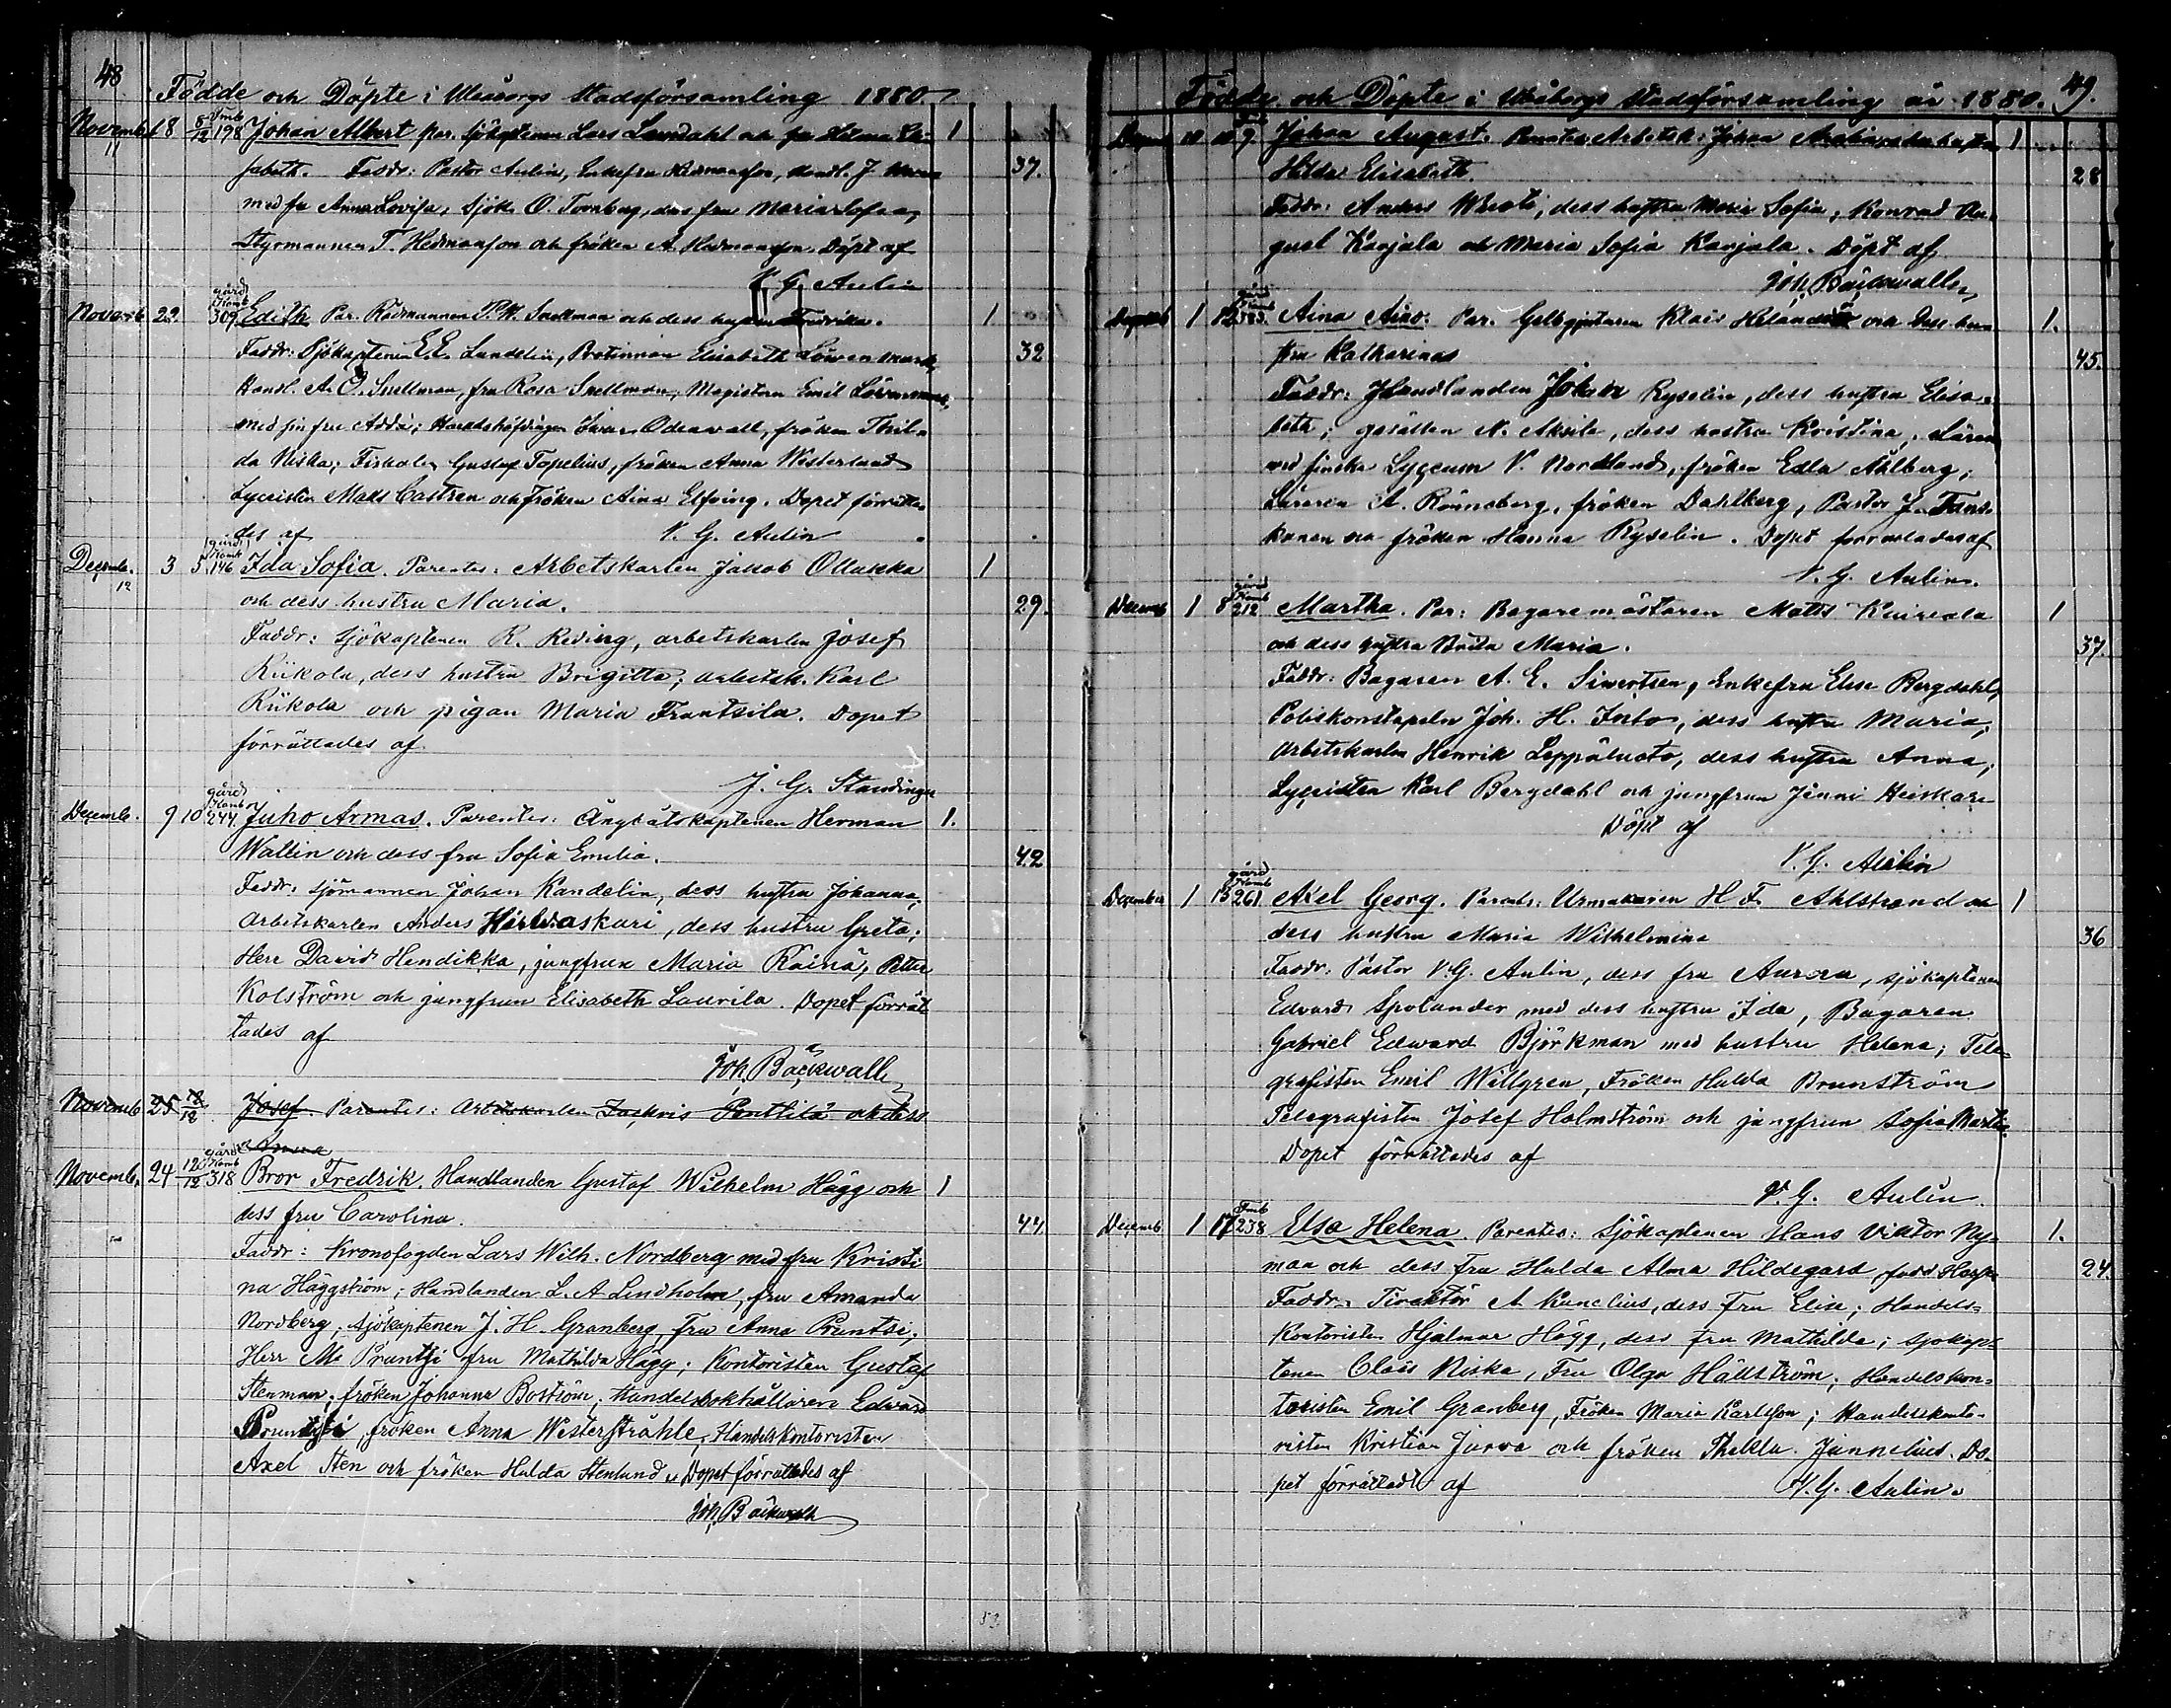 48
Födde och Döpte i Uleåborgs Stadsförsamling 1880
Novemb 18 8/12 198 Johan Albert Par. Sjökaptenen Lars Lundahl och fru Hilma Eli- 1
11
sabeth. Faddr: Pastor Aulin, Enkefru Hedmansson, Handl. J. 37.
med fru Anna Lovisa, Sjök. O. Tornberg, dess fru Maria Sofia,
Styrmannen T. Hedmanson och fröken A. Hedmanson. Döpt af
V. G. Aulin
gård
Novemb 22. 309 Edith Par. Rådmannen P. W. Snellman och dess hustru Fredrika. 1
Faddr: Sjökaptenen E. E. Lundelin, Elisabeth Löwenmark, 32
Handl. A. O. Snellman, fru Rosa Snellman, Magistern Emil Löwenmark,
med sin fru Adda; Häradshöfdingen Iwar Odenwall, fröken Thil-
da Niska; Fiskalen Gustaf Topelius, fröken Anna Westerlund
Lyceisten Mats Castrén och Fröken Aina Elfving. Dopet förrätta-
des af V. G. Aulin
gård
Decemb. 3 5 146 Ida Sofia. Parentes: Arbetskarlen Jakob Ollakka 1
12
och dess hustru Maria. 29.
Faddr: Sjökaptenen R. Reding, arbetskarlen Josef
Riikola, dess hustru Brigitta; arbetsk. Karl
Riikola och pigan Maria Frantsila. Dopet
förrättades af
J. G. Standinger
gård
Decemb. 9 10 244. Juho Armas. Parentes: Ångbåtskaptenen Herman 1.
Wallin och dess fru Sofia Emilia. 42
Faddr: sjömannen Johan Kandelin, dess hustru Johanna;
Arbetskarlen Anders , dess hustru Greta;
Herr David Hendikka, jungfrun Maria Rainä; Petter
Kolström och jungfrun Elisabeth Laurila. Dopet förrät
tades af
Joh. Bäckwall
Novemb 25 12/12 Josef. Parentes: Arbetskarlen Zackris Penttilä och dess
Anna
gård
Novemb. 24 12/12 318 Bror Fredrik. Handlanden Gustaf Wilhelm Hägg och 1
dess fru Carolina. 44.
Faddr: Kronofogden Lars Wilh. Nordberg med fru Kristi
na Häggström; Handlanden L. A. Lindholm, fru Amanda
Nordberg; sjökaptenen J. H. Granberg, fru Anna Pruntsi;
Herr M. Pruntsi fru Mathilda Hägg; Kontoristen Gustaf
Stenman; fröken Johanna Boström; Handelsbokhållaren Edward
Pruntsi, fröken Anna Westerstråhle, Handelskontoristen
Axel Sten och fröken Hulda Stenlund. Dopet förrättades af
Joh. Bäckwall
49.
Födde och Döpte i Uleåborgs Stadsförsamling år 1880.
10 10 9. Johan August. Parentes Arbetsk. Johan hustru 1
Hilda Elisabeth. 28
Faddr: Anders , dess hustru Maria Sofia; Konrad Au-
gust Karjala och Maria Sofia Karjala. Döpt af
Joh. Bäckwall
gård
Decemb 1 12 383. Aina Aino. Par. Gelbgjutaren Klas Helander och dess hus- 1.
tru Katharina 45.
Faddr: Handlanden Johan Ryselin, dess hustru Elisa-
beth; gesällen N. Aksila, dess hustru Kristina. Läraren
vid finska Lyceum V. Nordlund, fröken Edla Åhlberg;
Läraren A. Rönneberg, fröken Dahlberg, Pastor J. Fand-
och fröken Hanna Ryselin. Dopet förrättades af
V. G. Aulin.
gård
Decemb 1 8 212 Martha. Par: Bagaremästaren Matts Kuireala 1
och dess hustru Brita Maria. 37.
Faddr: Bagaren A. E. Siwertsen, Enkefru Else Bergdahl,
Poliskonstapeln Joh. H. Justo, dess hustru Maria;
Arbetskarlen Henrik Leppäluoto, dess hustru Anna;
Lyceisten Karl Bergdahl och jungfrun Jenni Heiskari
Döpt af
V. G. Aulin
gård
December 1 13 261 Axel Georg. Parents: Urmakaren H. F. Ahlstrand och 1
dess hustru Maria Wilhelmina 36
Faddr: Pastor V. G. Aulin, dess fru Aurora, sjökaptenen
Edvard Spolander med dess hustru Ida, Bagaren
Gabriel Edward Björkman med hustru Helena; Tele-
grafisten Emil Wallgren, Fröken Hulda Brunström
Telegrafisten Josef Holmström och jungfrun Sofia Martin.
Dopet förrättades af
V. G. Aulin.
Decemb 1 17 238 Elsa Helena. Parentes: Sjökaptenen Hans Viktor Ny- 1.
man och dess fru Hulda Alma Hildegard, född 24.
Faddr: Direktör A. Kunelius, dess Fru Elise; Handels-
Kontoristen Hjalmar Hägg, dess fru Mathilda; Sjökap-
tenen Claës Niska, Fru Olga Hällström; Handelskon-
toristen Emil Granberg, Fröken Maria Karlsson; Handelskonto-
risten Kristian Jurva och fröken Thekla Junnelius. Do-
pet förrättadt af V. G. Aulin.